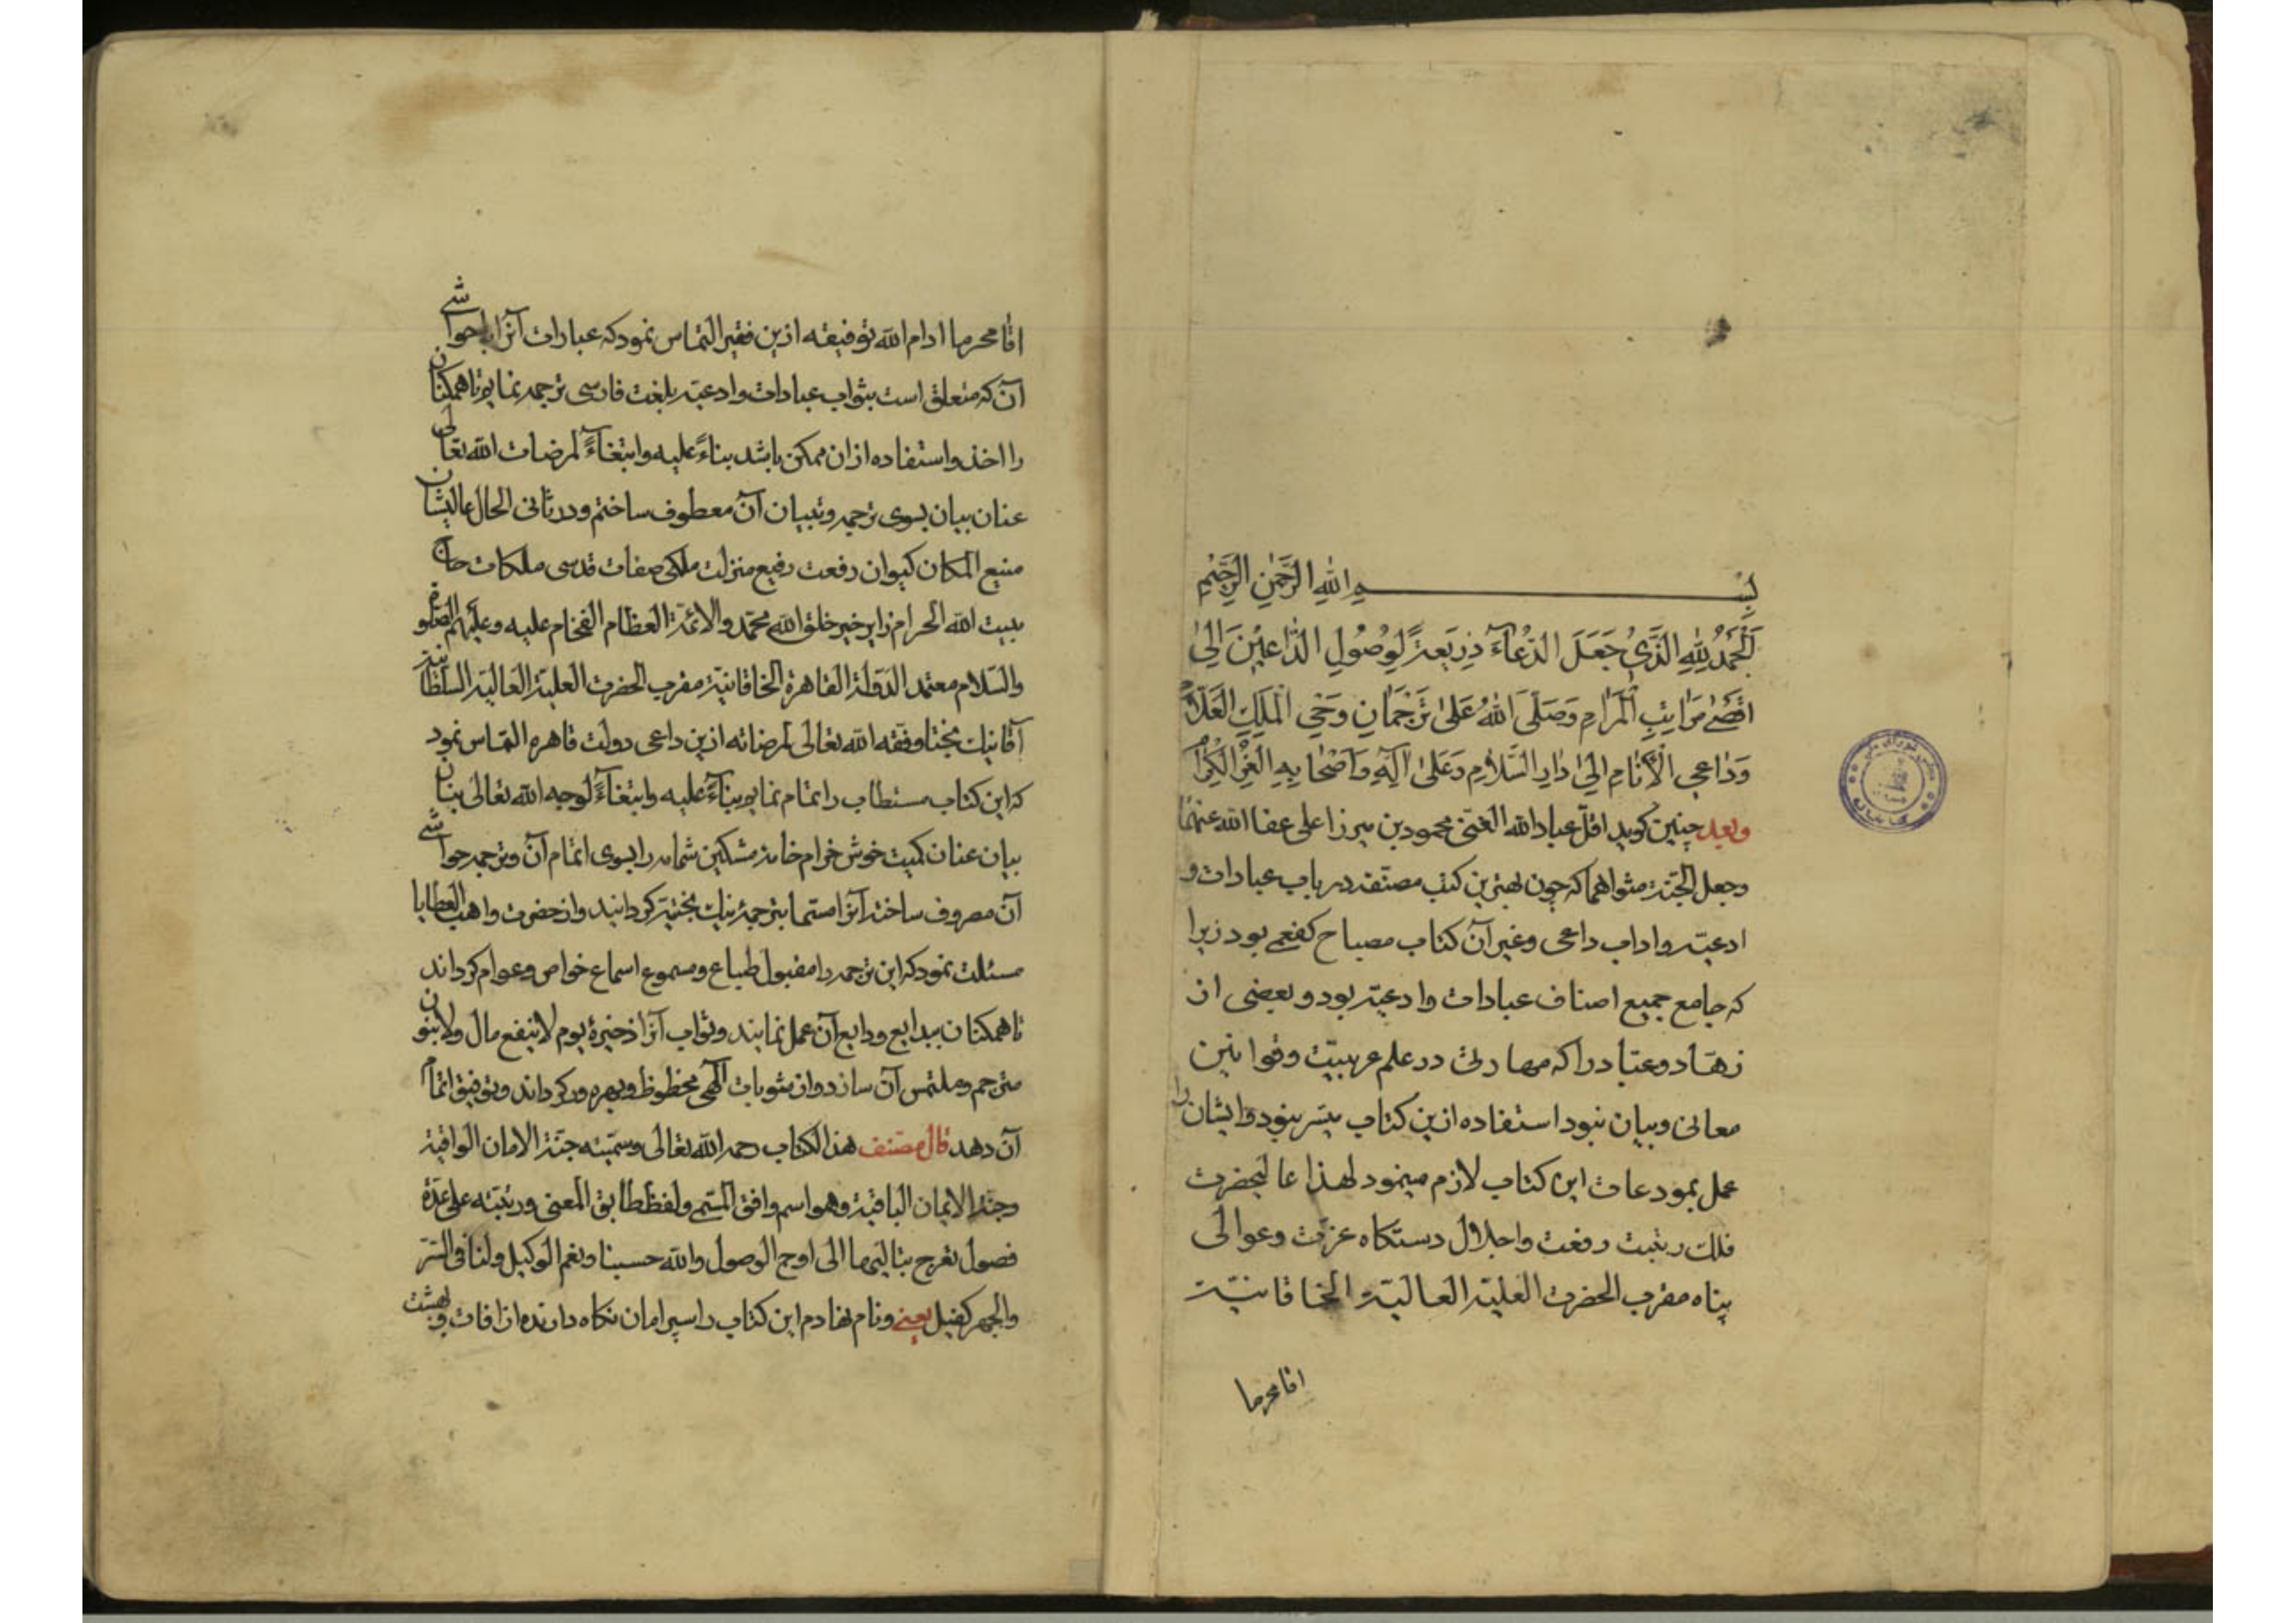 بسم الله الرحمن الرحيم
اَلْحَمْدُ لِلّٰهِ الَّذی جَعَلَ الدُّعآءَ ذَریعَةً لِوُصُولِ الدّٰاعینَ اِلیٰ
اَقْصیٰ مَرٰاتِبِ الْمَرٰامِ وَصَلَّی اللّٰهُ عَلیٰ تَرْجَمٰانِ وَحْیِ الْمَلِكِ الْعَلّٰامِ
وَدٰاعِی الْاَنٰامِ اِلیٰ دٰارِ السَّلٰامِ وَعَلیٰ اٰلِهِ وَاَصْحٰابِهِ الْغُرِّ الْكِرٰامِ
وبعد چنین کوید اقلّ عباد الله الغنی محمود بن میرزا علی عفا الله عنهما
وجعل الجنّة مثواهما که چون بهترین کتب مصنّفه در باب عبادات و
ادعیّه واداب داعی وغیر آن کتاب مصباح کفعمی بود زیرا
که جامع جمیع اصناف عبادات وادعیّه بود و بعضی از
زهّاد وعبّاد را که مهارتی در علم عربیّت وقوانین
معانی وبیان نبود استفاده ازین کتاب میسّر نبود وایشان را
عمل بمودعات این کتاب لازم مینمود لهذا عالیحضرت
فلك رتبت رفعت واجلال دستکاه عزّت وعوالی
پناه مقرب الحضرت العلیّة العالیّة الخاقانیّة
اقا محرما
اقا محرما ادام الله توفیقه ازین فقیر التماس نمود که عبارات آنرا باحواشی
آن که متعلق است بثواب عبادات وادعیّه بلغت فارسی ترجمه نمایم تا همکنان
را اخذ واستفاده ازان ممکن باشد بناءً علیه وابتغآءً لمرضات الله تعالی
عنان بیان بسوی ترجمه وتبیان آن معطوف ساختم ودر ثانی الحال عالیشان
منیع المکان کیوان رفعت رفیع منزلت ملکی صفات قدسی ملکات حاج
بیت الله الحرام زایر خیر خلق الله محمّد والائمّة العظام الفخام علیه وعلیهم الصلوة
والسّلام معتمد الدّولة القاهرة الخاقانیّة مقرب الحضرت العلیّة العالیّة السلطانیّة
آقا بنك بختا وفقه الله تعالی لمرضاته ازین داعی دولت قاهره التماس نمود
که این کتاب مستطاب را تمام نمایم بنآءً علیه وابتغآءً لوجه الله تعالی بنان
بیان عنان کمیت خوش خرام خامه مشکین شمامه را بسوی اتمام آن وترجمه حواشی
آن مصروف ساخته آنرا مسمّا بترجمهٔ بنك بختیّه کردانید واز حضرت واهب العطایا
مسئلت نمود که این ترجمه را مقبول طباع ومسموع اسماع خواص وعوام کرداند
تا همکنان ببدایع ودایع آن عمل نمایند وثواب آنرا ذخیرهٔ یوم لاینفع مال ولا بنون
مترجم وملتمس آن سازد واز مثوبات الٓهی محظوظ وبهره ور کرداند وتوفیق اتمام
آن دهد قال مصنف هذا الکتاب رحمه الله تعالی وسمّیته جنّة الامان الواقیة
وجنّة الایمان الباقیة وهو اسم وافق المسمّی ولفظ طابق المعنی ورتبته علی عدّة
فصول تعرج بتالیها الی اوج الوصول والله حسبنا ونعم الوکیل ولنا فی السّر
والجهر کفیل یعنی ونام نهادم این کتاب را سپر امان نکاه دارنده از افات وبهشت